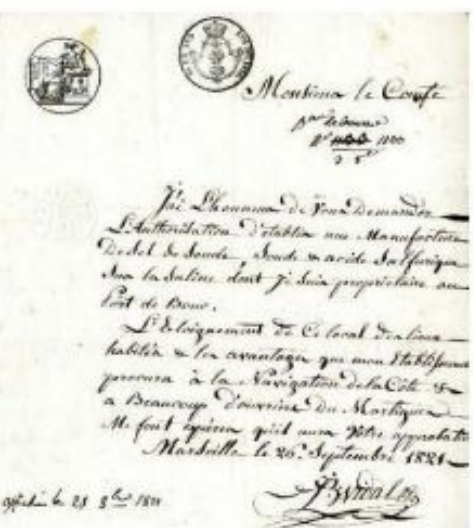 Monsieur le Comte
1100
J'ai L'honneur de Vous Demander
L'Authorisation D'établir une Manufacture
De Sel de Soude, Soude & acide Sulfurique
Sur la Saline dont je suis propriétaire au
Port de Bouc.
L'Eloignement de Ce local des lieux
habités & les avantages que mon Etablissement
procura à la Navigation de la Côte &
a Beaucoup d'ouvriers du Martigues
Me font espérer qu'il aura Votre approbation
Marseille le 26 Septembre 1821
le 28 1821